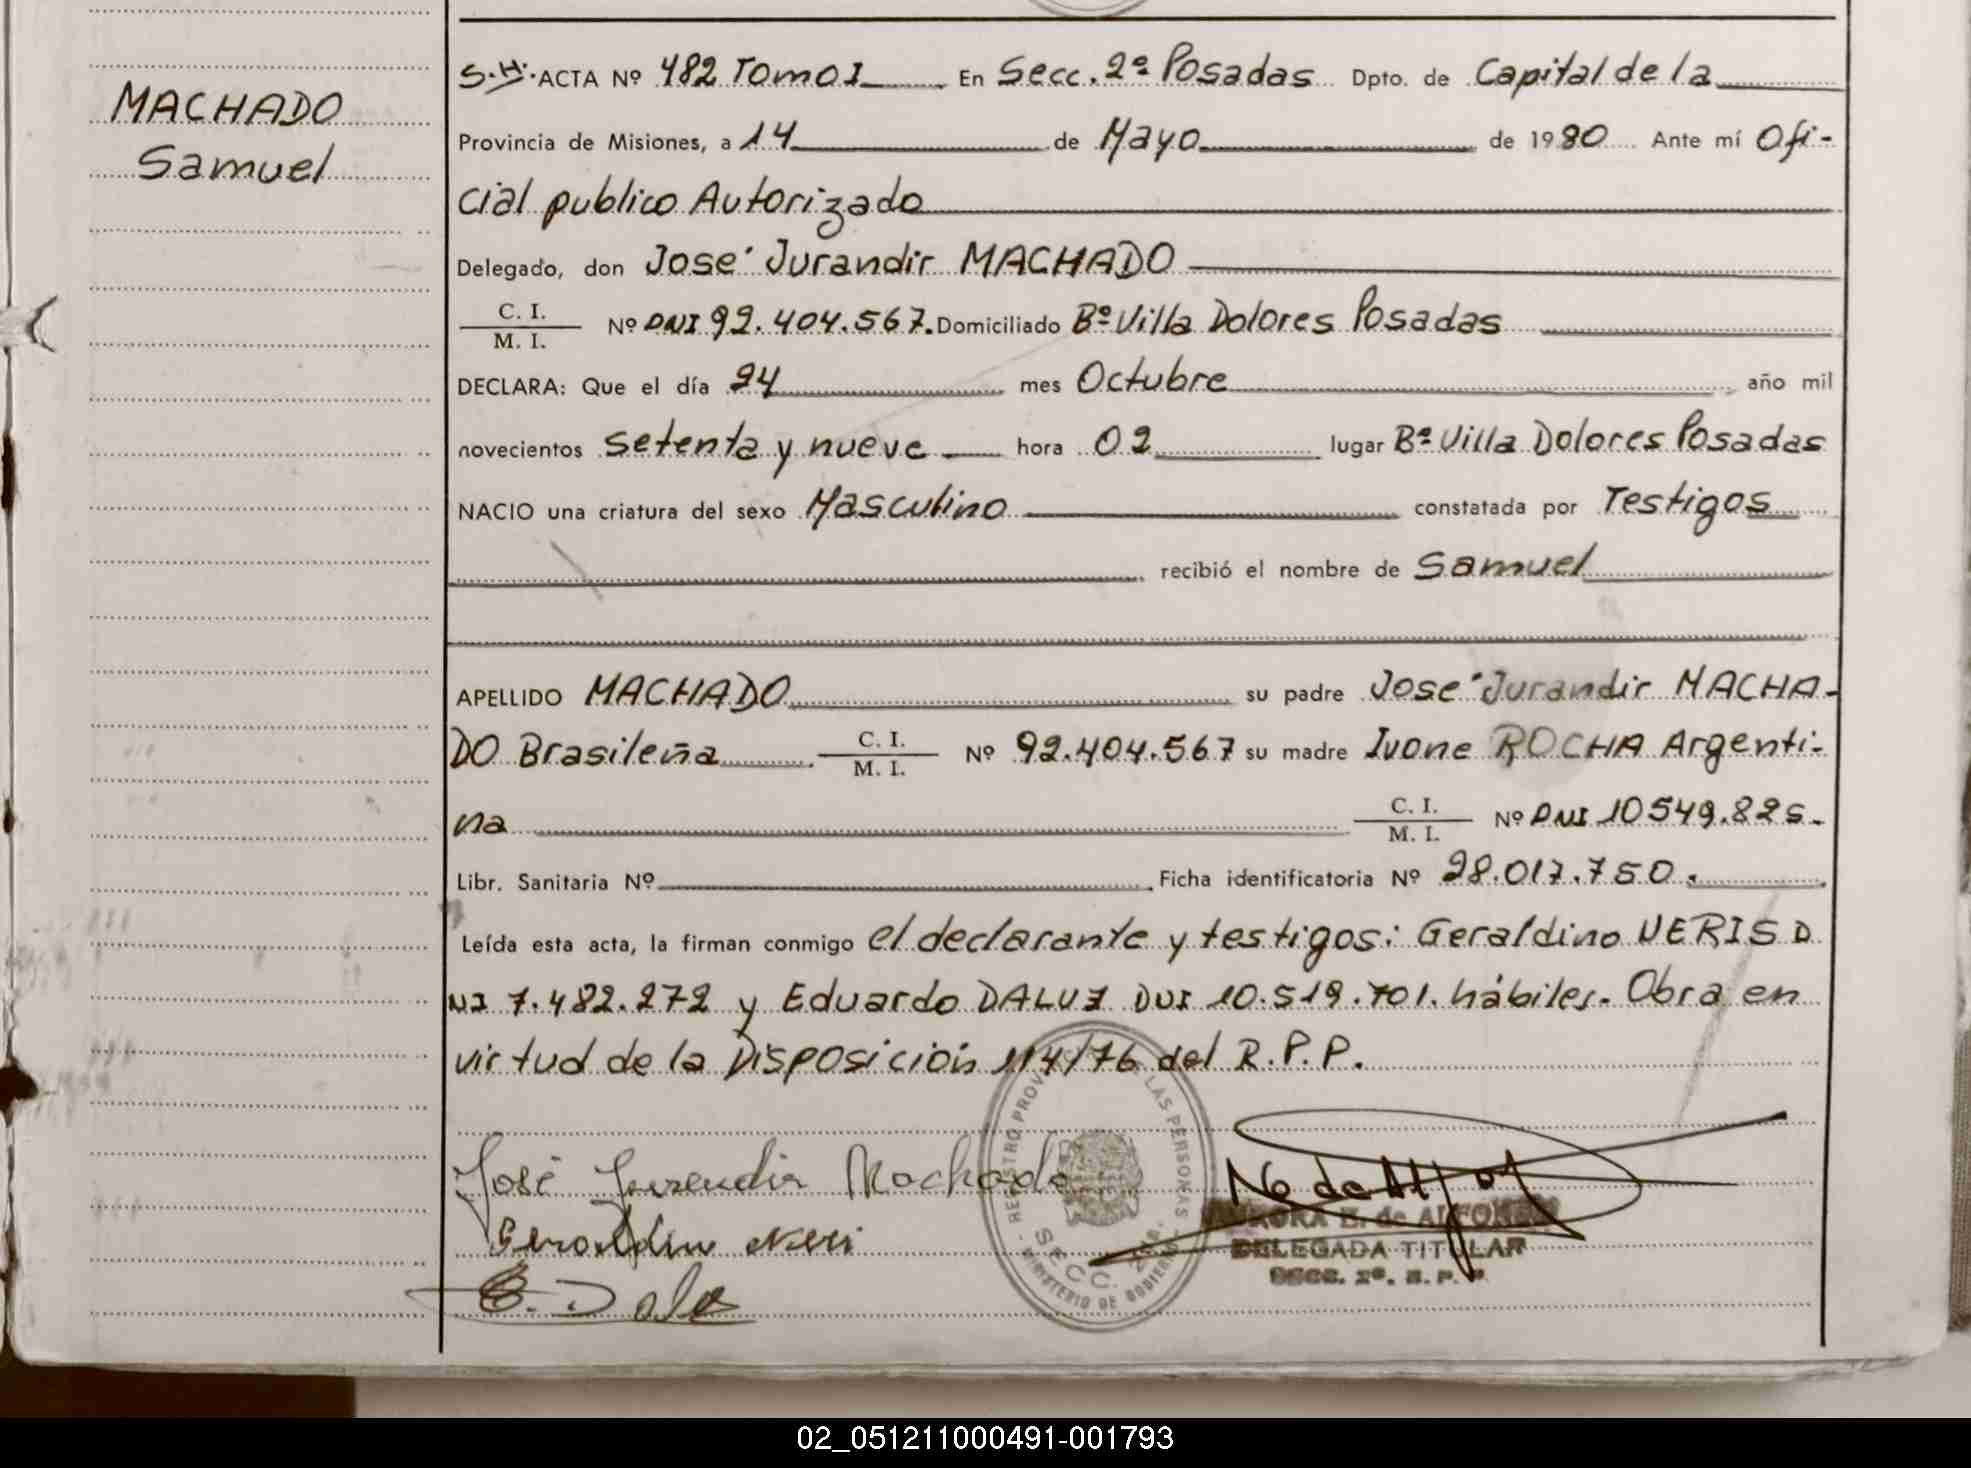 MACHADO
Samuel
S.H. ACTA Nº 482 Tomo I En Secc. 2ª Posadas Dpto. de Capital de la
Provincia de Misiones, a 14 de Mayo de 1980 Ante mí Ofi-
cial publico Autorizado
Delegado, don José Jurandir MACHADO
C. I.
M. I. Nº DNI 92.404.567. Domiciliado Bº Villa Dolores Posadas
DECLARA: Que el día 24 mes Octubre año mil
novecientos setenta y nueve hora 02 lugar Bº Villa Dolores Posadas
NACIO una criatura del sexo Masculino constatada por Testigos
recibió el nombre de Samuel
APELLIDO MACHADO su padre José Jurandir MACHA-
DO Brasileña C. I. Nº 92.404.567 su madre Ivone ROCHA Argenti-
M. I.
na C. I. Nº DNI 10549.825.
M. I.
Libr. Sanitaria Nº Ficha identificatoria Nº 28.017.750.
Leída esta acta, la firman conmigo el declarante y testigos: Geraldino NERIS D
NI 7.482.272 y Eduardo DALUZ DNI 10.519.701. hábiles. Obra en
virtud de la Disposición 114/76 del R.P.P.
José Jurandir Machado
Geraldino Neri
E. Dalu
REGISTRO PROV LAS PERSONAS
SECC. 2da.
MINISTERIO DE GOBIERNO
AURORA E. de ALFONSO
DELEGADA TITULAR
SECC. 2ª. R. P. P.
02_051211000491-001793